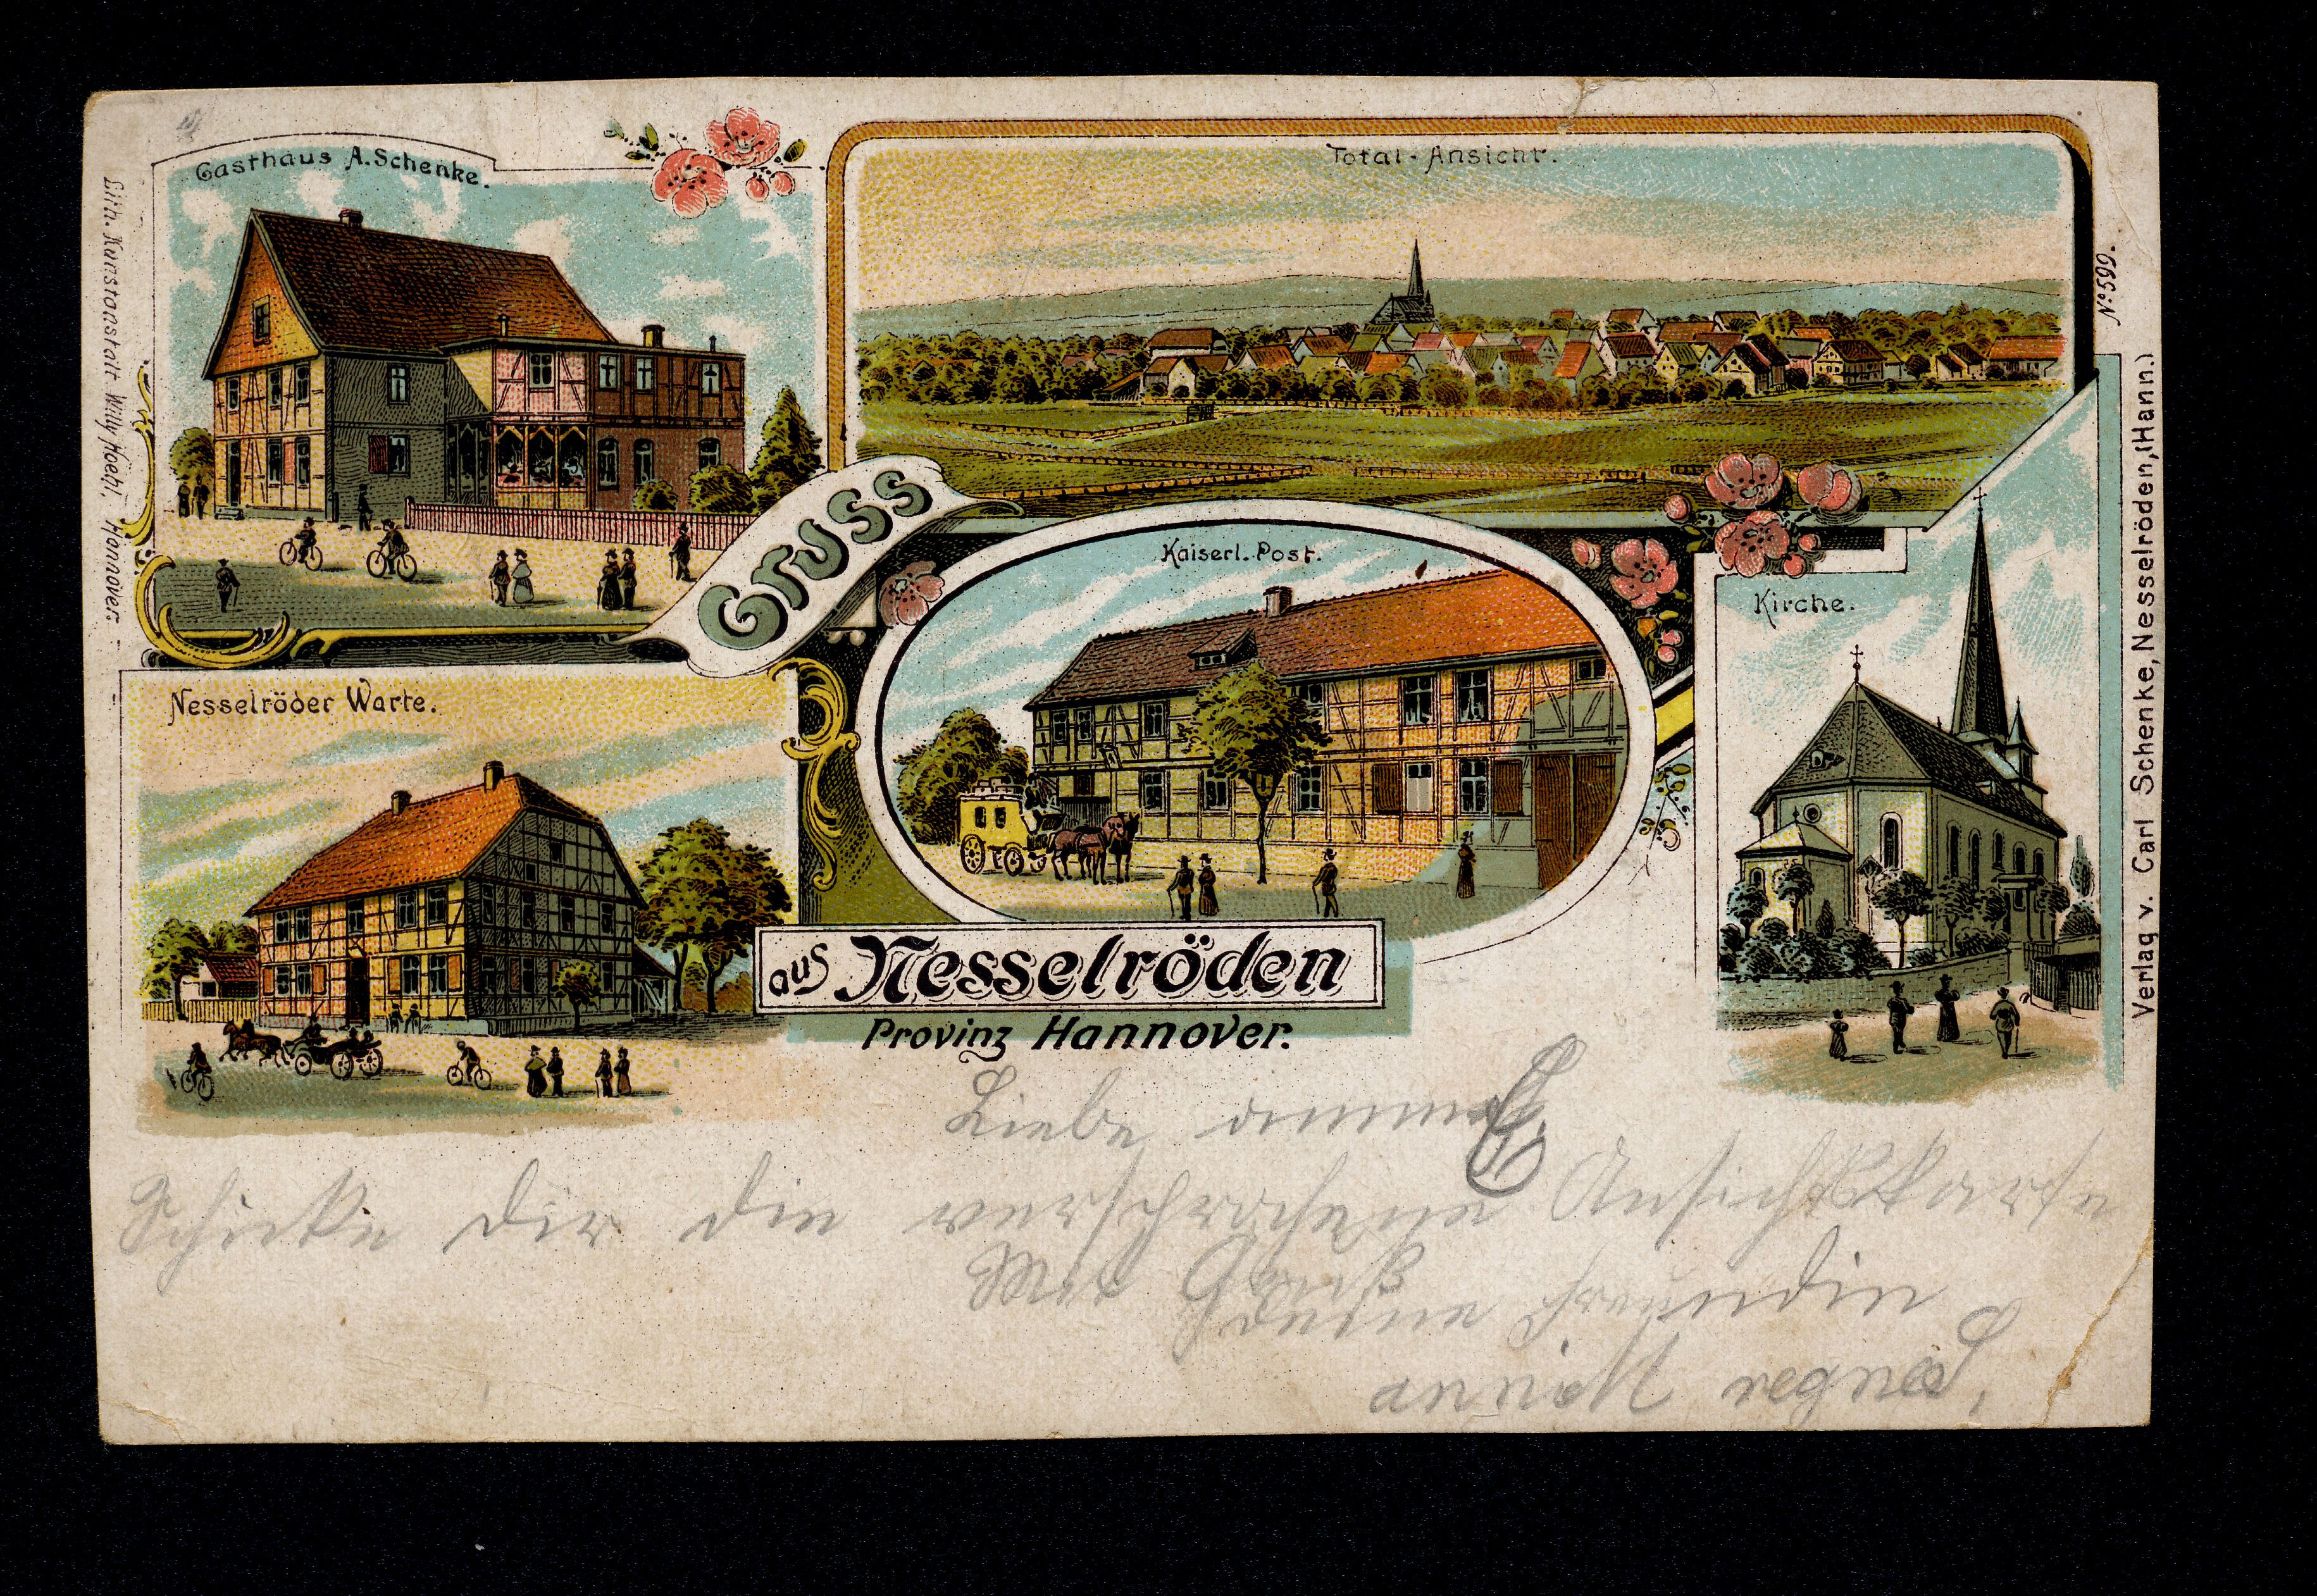 Gasthaus A. Schenke.
Total-Ansicht.
Gruss
Kaiserl. Post.
Kirche.
Nesselröder Warte.
aus Nesselröden
Provinz Hannover.
Lith. Kunstanstalt Willy Hoehl, Hannover.
No 599.
Verlag v. Carl Schenke, Nesselröden, (Hann.)
Liebe
Schicke dir die versprochene Ansichtskarte
Mit Gruß
deine Freundin